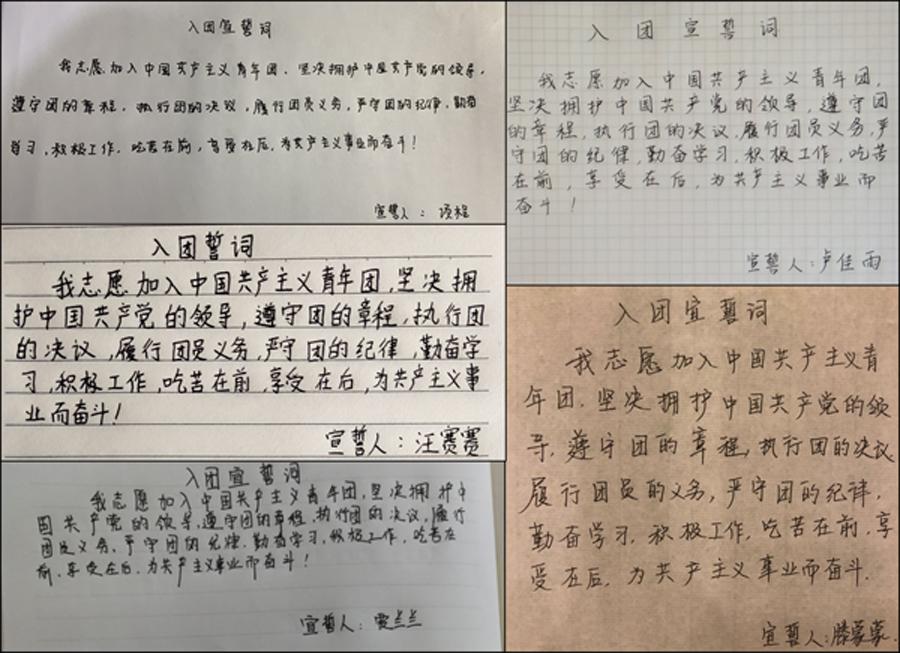 入团宣誓词
我志愿加入中国共产主义青年团，坚决拥护中国共产党的领导，
遵守团的章程，执行团的决议，履行团员义务，严守团的纪律，勤奋
学习，积极工作，吃苦在前，享受在后，为共产主义事业而奋斗！
宣誓人：项程
入团誓词
我志愿加入中国共产主义青年团，坚决拥
护中国共产党的领导，遵守团的章程，执行团
的决议，履行团员义务，严守团的纪律，勤奋学
习，积极工作，吃苦在前，享受在后，为共产主义事
业而奋斗！
宣誓人：汪赛赛
入团宣誓词
我志愿加入中国共产主义青年团，坚决拥护中
国共产党的领导，遵守团的章程，执行团的决议，履行
团员义务，严守团的纪律，勤奋学习，积极工作，吃苦在
前，享受在后，为共产主义事业而奋斗！
宣誓人：贾兰兰
入团宣誓词
我志愿加入中国共产主义青年团，
坚决拥护中国共产党的领导，遵守团
的章程，执行团的决议，履行团员义务，严
守团的纪律，勤奋学习，积极工作，吃苦
在前，享受在后，为共产主义事业而
奋斗！
宣誓人：卢佳雨
入团宣誓词
我志愿加入中国共产主义青
年团，坚决拥护中国共产党的领
导，遵守团的章程，执行团的决议
履行团员的义务，严守团的纪律，
勤奋学习，积极工作，吃苦在前，享
受在后，为共产主义事业而奋斗.
宣誓人：滕蒙蒙.